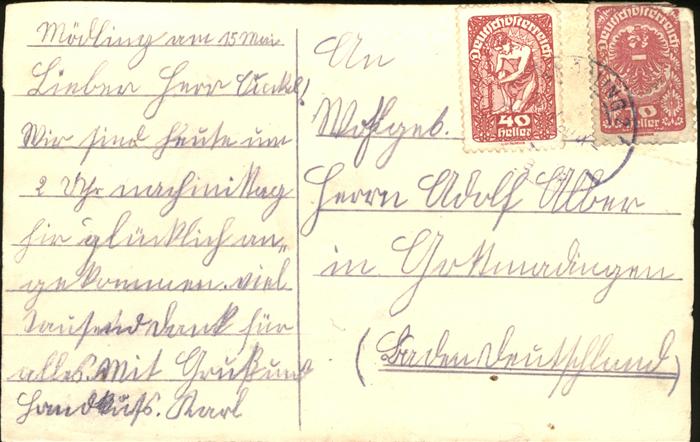 Mödling am 15 Mai
Lieber Herr
Wir sind heute um
2 Uhr nachmittag
hir glücklich an„
gekommen. viel
Tausend dank für
alles. Mit Gruß und
Handkuss. Karl
An
Wohlgeb.
Herrn Adolf Alber
in Gottmadingen
(Baden Deutschland)
Deutschösterreich
40
Heller
Deutschösterreich
Heller